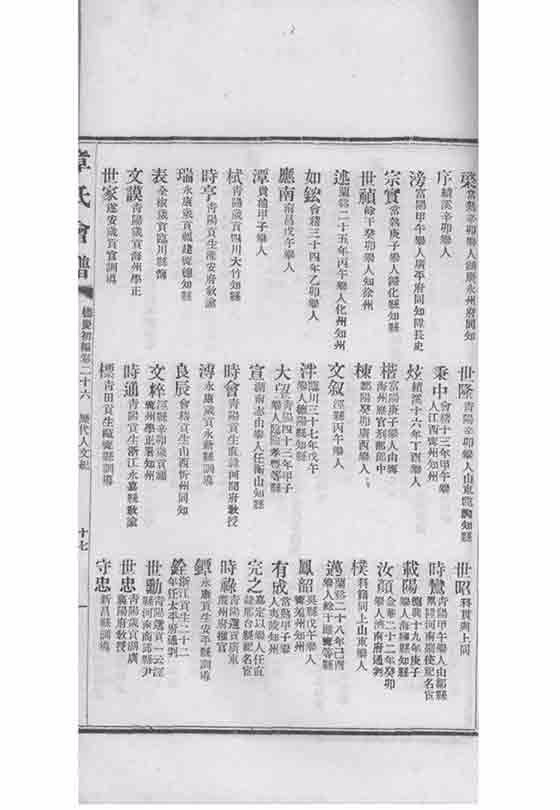 棨 常熟辛卯舉人湖廣永州府同知
序 績溪辛卯舉人
滂 青陽甲午舉人廣平府同知陞長史
宗實 常熟庚子舉人歸化縣知縣
世禎 餘干癸卯舉人知徐州
述 蘭谿二十五年丙午舉人化州知州
如鋐 會稽三十四年乙卯舉人
應南 南昌戊午舉人
潭 貴池甲子舉人
栻 青陽歲貢四川大竹知縣
時亨 青陽貢生淮安府教諭
瑞 永康歲貢福建德化知縣
表 全椒歲貢臨川縣
文謨 青陽歲貢海州學正
世家 遂安歲貢官訓導
世隆 青陽辛卯舉人山東臨朐知縣
秉中 會稽十三年甲午舉人江西寧州知州
炫 績溪十六年丁酉舉人
楷 富陽庚子舉人由寧海州歷官刑部郎中
棟 鄱陽癸卯廣西舉人
文叙 涇縣丙午舉人
泮 臨川三十七年戊午舉人德陽縣知縣
大望 青陽四十三年甲子舉人臨隰孝豐等縣
宣 湖南志由舉人任衡山知縣
時會 青陽貢生直隷河間府教授
溥 永康歲貢沙縣訓導
良辰 會稽貢生山西忻州同知
文粹 涇縣辛卯歲貢
時通 青陽貢生浙江永嘉縣教諭
標 青田貢生縣訓導
世昭 科貫與上同
時鸞 青陽甲午舉人由鄒縣黑縣河南副使祀名宦
載陽 德興十九年庚子舉人海鹽縣知縣
汝顏 金華二十二年癸卯舉人濟南府通判
樸 科籍同上山東舉人
邁 蘭谿二十八年己酉舉人餘干鍾寶等縣
鳳韶 吳縣戊午舉人寶羌州知州
有成 常熟甲子舉人夷陵知州
完之 嘉定以舉人任直隷邢台縣祀名宦
時祿 青陽選貢廣東廉州府推官
鐔 永康貢生安平縣訓導
銓 浙江貢生二十二年任太平府通判
世勳 青陽選貢一云涇縣河南南部縣尹
世忠 青陽歲貢湖廣襄陽府教授
守忠 新昌縣訓導
章氏會譜 德慶初編卷二十六 歷代人文紀 十七